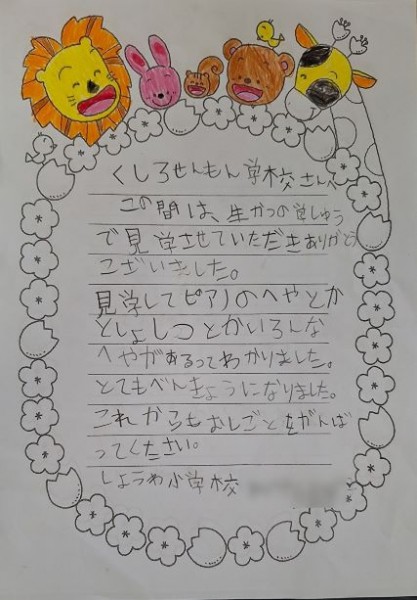 くしろせんもん学校さんへ
この間は、生かつの学しゅう
で見学させていただきありがとう
ございました。
見学してピアノのへやとか
としょしつとかいろんな
へやがあるってわかりました。
とてもべんきょうになりました。
これからもおしごとをがんば
ってください。
しょうわ小学校